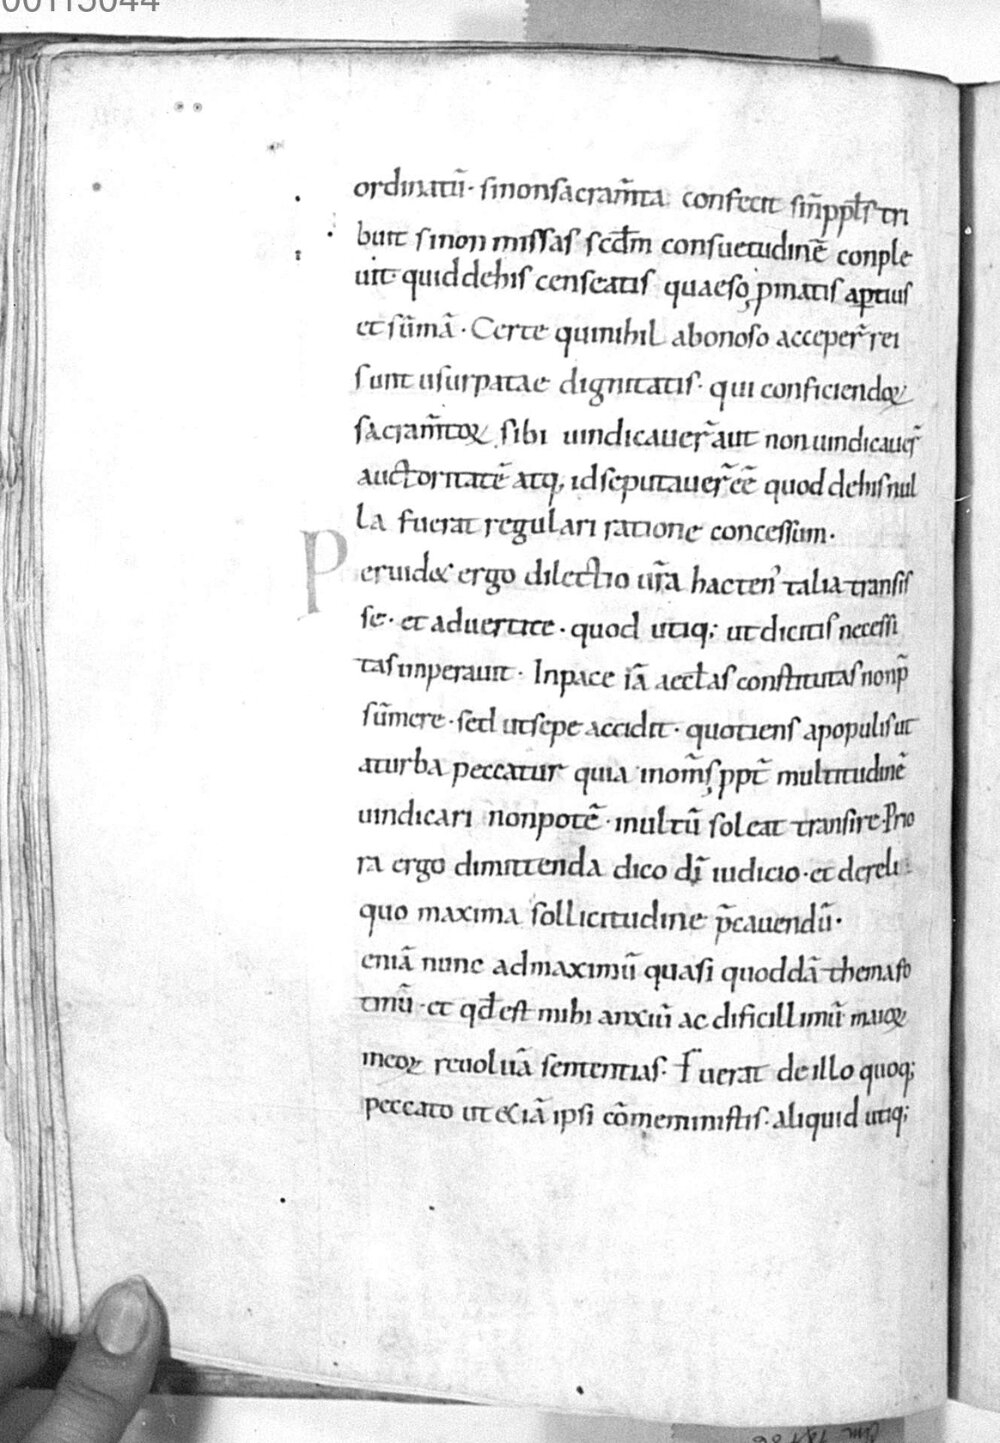 00113044
ordinatū· si non sacram̄ta confecit sin̄ ppl̄s tri
buit si non missas scd̄m consuetudinē conple
uit· quid de his censeatis quaeso ꝓmatis aptius
et sūmā· Certe qui nihil abonoso acceper̄ rei
sunt usurpatae dignitatis· qui conficiendoꝝ
sacram̄toꝝ sibi uindicauer̄ aut non uindicauer̄
auctoritatē atq; id se putauer̄ eē quod de his nul
la fuerat regulari ratione concessum·
Peruidet ergo dilectio ur̄a hacten' talia transis
se· et aduertite· quod utiq; ut dicitis necessi
tas imperauit· In pace iā aecl̄as constitutas non p̄
sūmere· sed ut sepe accidit· quotiens a populis ut
a turba peccatur quia in om̄s ppt̄ multitudinē
uindicari non potē· inultū soleat transire· Prio
ra ergo dimittenda dico dī iudicio· et de reli
quo maxima sollicitudine p̄cauendū·
eniā nunc ad maximū quasi quoddā thema so
timū· et qd̄ est mihi anxiū ac dificillimū maioꝝ
meoꝝ reuoluā sententias· Fuerat de illo quoq;
peccato ut etiā ipsi cōmeministis· aliquid utiq;